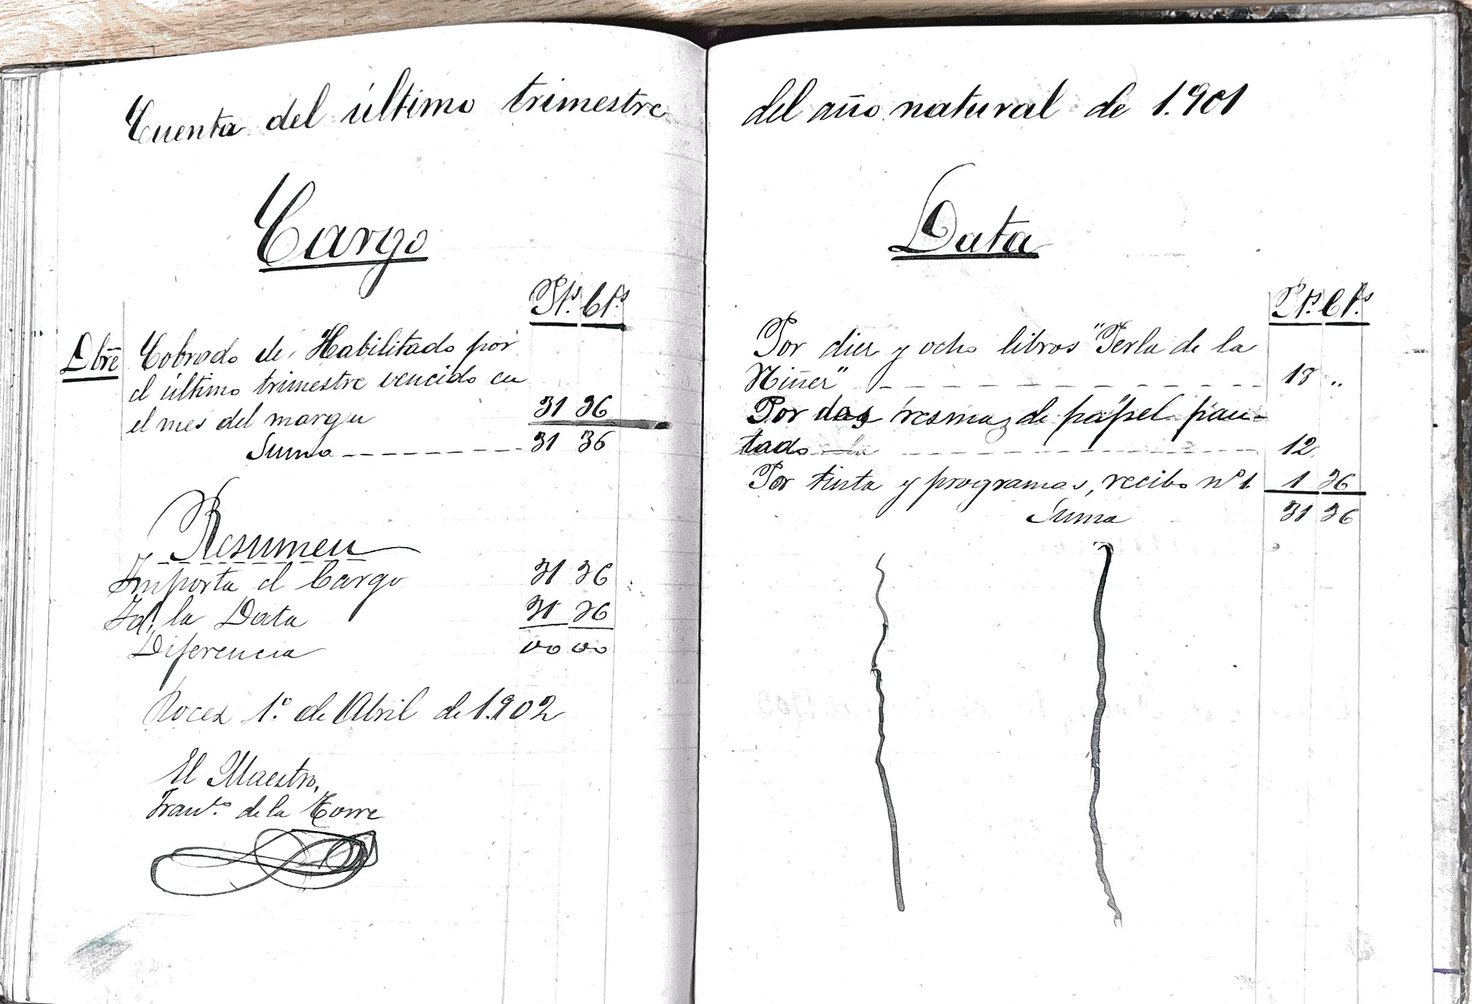 Cuenta del último trimestre
Cargo
Pts. Cts
Dbre Cobrado de Habilitado por
el último trimestre vencido en
el mes del margen 31 36
Suma 31 36
Resumen
Importa el Cargo 31 36
Id. la Data 31 36
Diferencia 00 00
Roces 1º de Abril de 1.902
El Maestro,
Franco. de la Torre
del año natural de 1.901
Data
Pts. Cts
Por diez y ocho libros "Perla de la
Niñez" 18 „
Por dos resmas de papel pau-
tado 12
Por tinta y programas, recibo nº 1 1 36
Suma 31 36